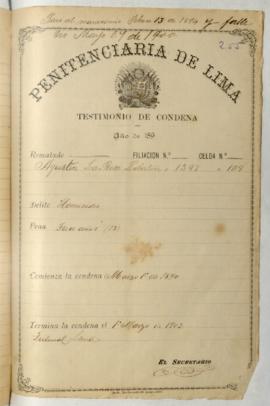 Pasó al manicomio Febrero 13 de 1894 y falle
en Mayo 29 de 1900
255
PENITENCIARIA DE LIMA
TESTIMONIO DE CONDENA
Año de 189
Rematado FILIACION N.º CELDA N.º
Agustin La Rosa 1397 108
Delito Homicidio
Pena
Comienza la condena el Marzo 1º de 1890
Termina la condena el 1º Marzo de 1903
Tribunal Lima
EL SECRETARIO